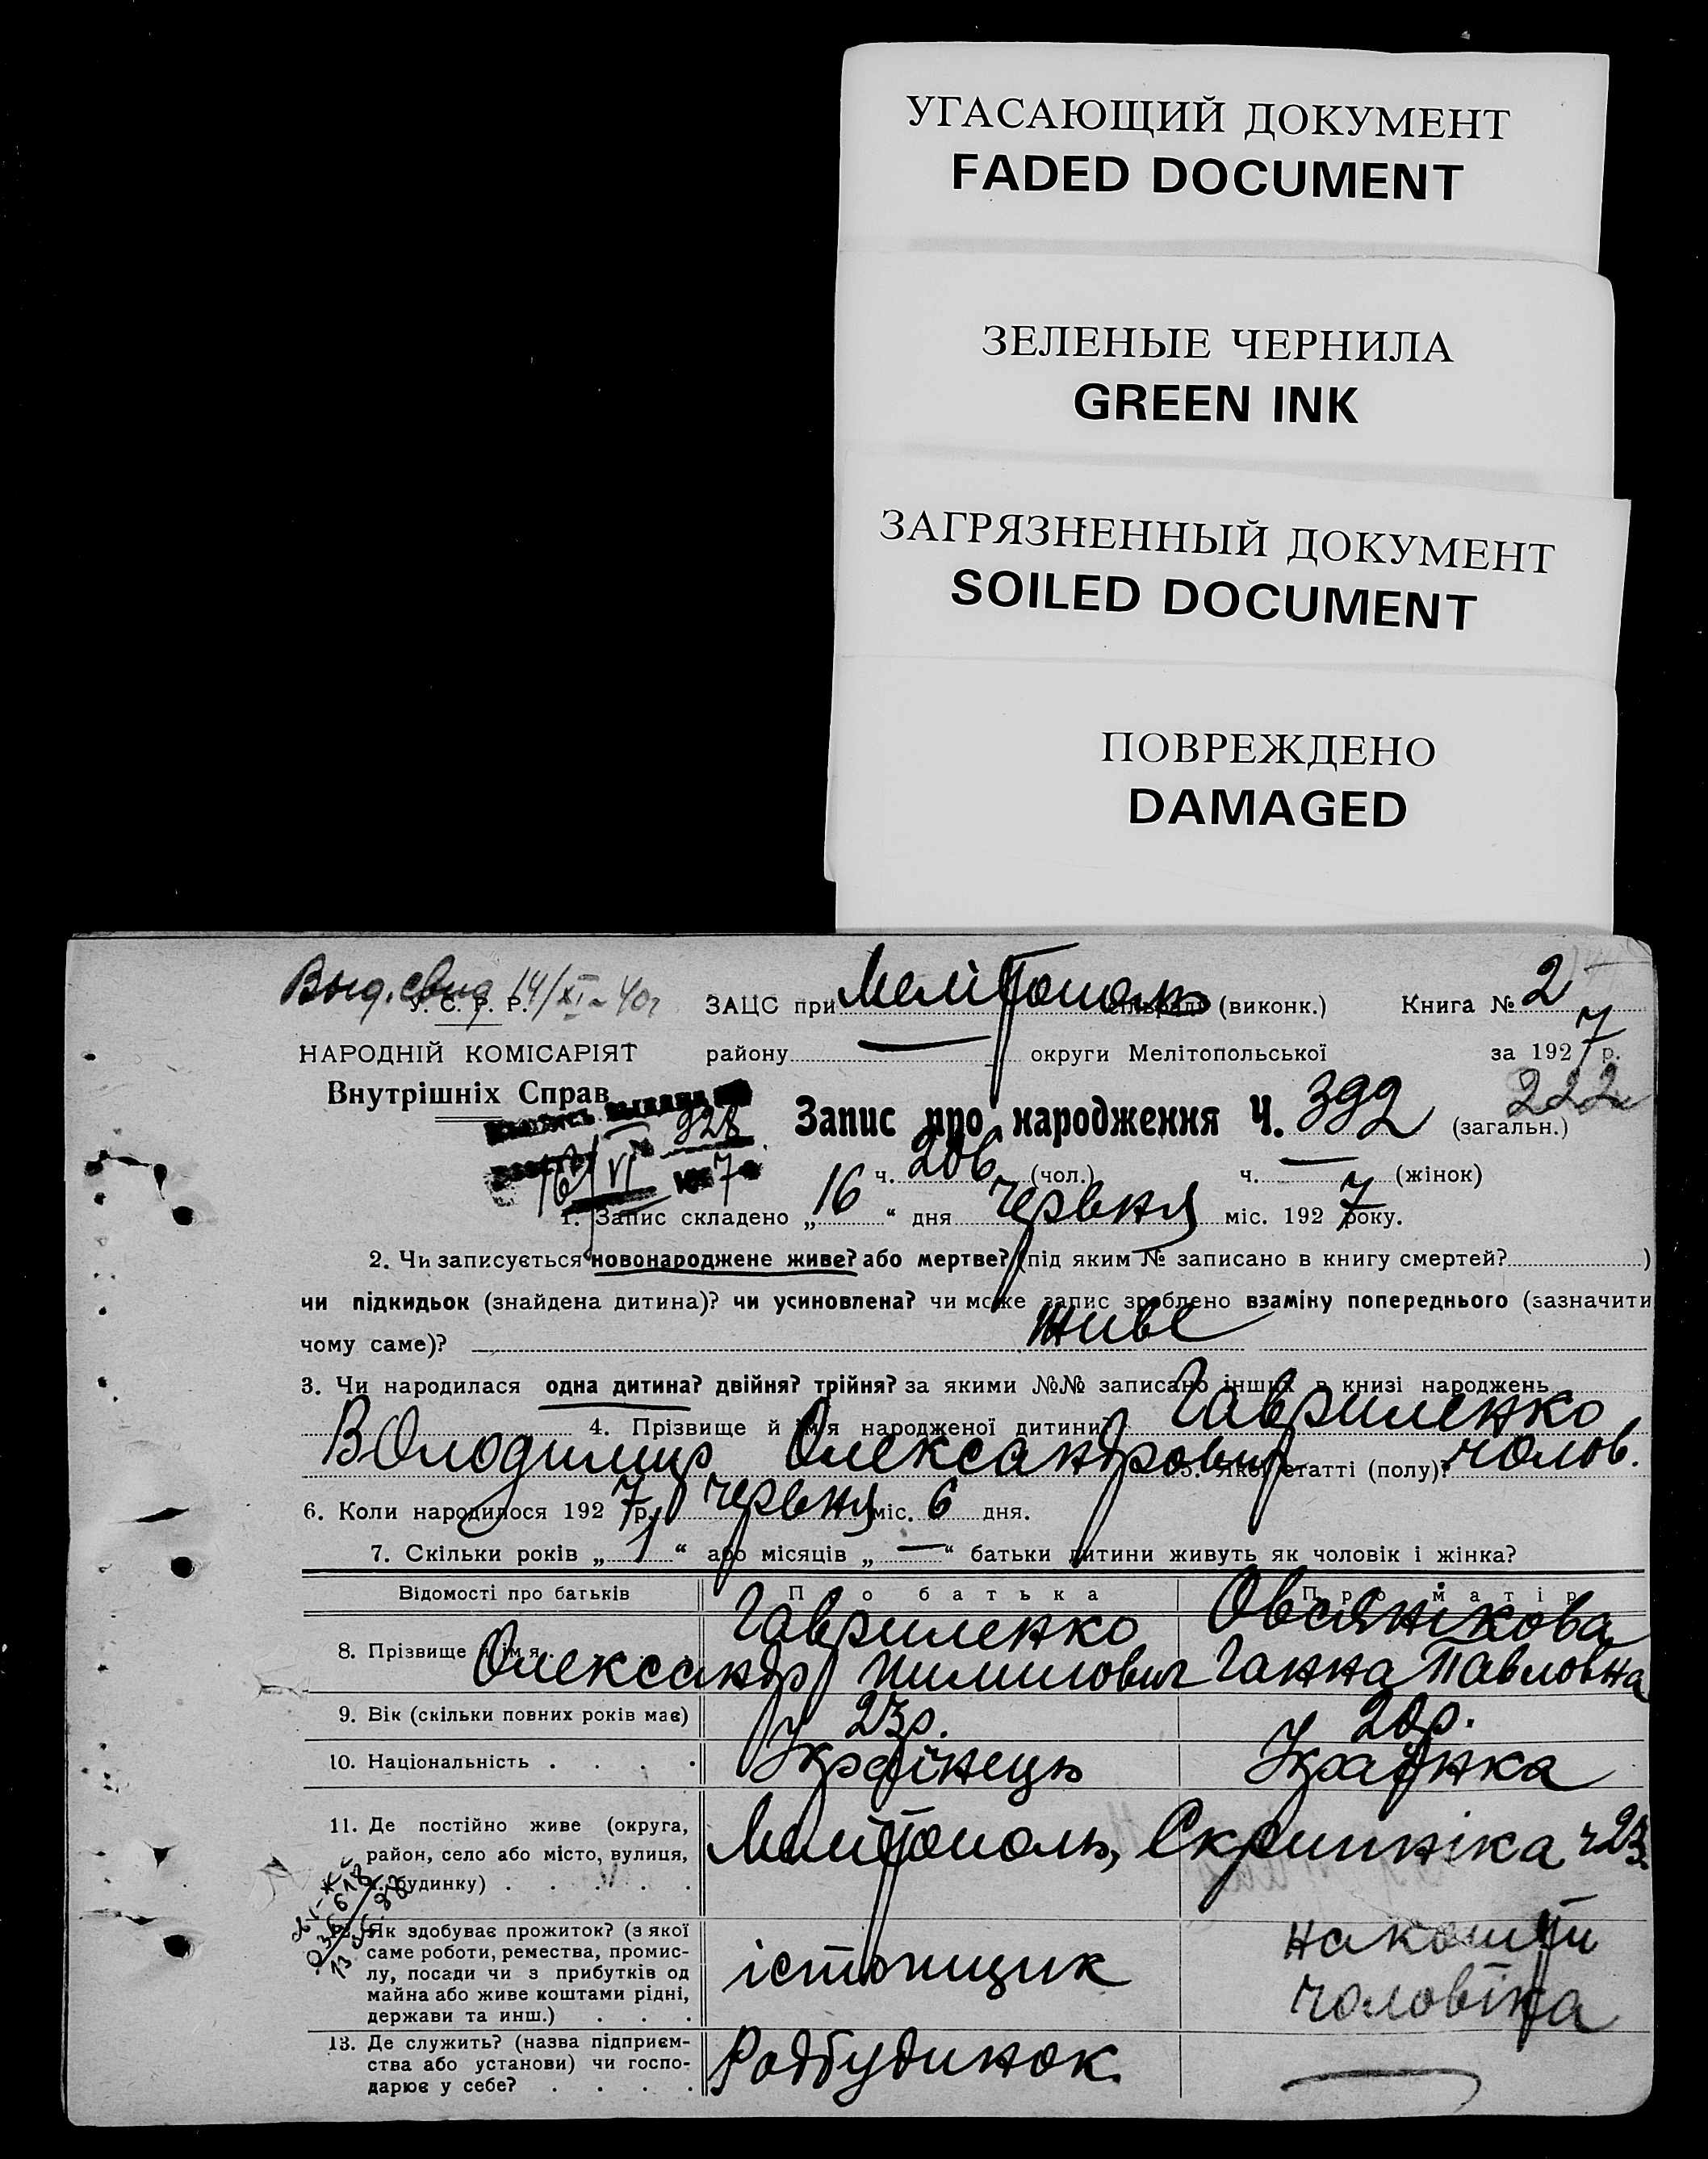 УГАСАЮЩИЙ ДОКУМЕНТ
FADED DOCUMENT
ЗЕЛЕНЫЕ ЧЕРНИЛА
GREEN INK
ЗАГРЯЗНЕННЫЙ ДОКУМЕНТ
SOILED DOCUMENT
ПОВРЕЖДЕНО
DAMAGED
Выд. свид 14/XI-40г
У. С. Р. Р. ЗАЦС при Мелітополь сільраді (виконк.) Книга № 2
НАРОДНІЙ КОМІСАРІЯТ району — округи Мелітопольської за 1927 р.
Внутрішніх Справ 222
328 Запис про народження Ч. 392 (загальн.)
16/VI 7 ч. 206 (чол.) ч. — (жінок)
1. Запис складено „16“ дня червня міс. 1927 року.
2. Чи записується новонароджене живе? або мертве? (під яким № записано в книгу смертей? )
чи підкидьок (знайдена дитина)? чи усиновлена? чи може запис зроблено взаміну попереднього (зазначити
чому саме)? живе
3. Чи народилася одна дитина? двійня? трійня? за якими №№ записано інших в книзі народжень
4. Прізвище й ім'я народженої дитини? Гавриленко
Володимир Олександрович 5. Якої статті (полу)? чолов.
6. Коли народилося 1927 р. червня міс. 6 дня.
7. Скільки років „1“ або місяців „—“ батьки дитини живуть як чоловік і жінка?
Відомості про батьків Про батька Про матір
8. Прізвище й ім'я Гавриленко Овсянікова
Олександр Пилипович Ганна Павловна
9. Вік (скільки повних років має) 23р. 20р.
10. Національність . . . . Українець Українка
11. Де постійно живе (округа,
район, село або місто, вулиця,
ч. будинку) . . . . . Мелітополь, Скрипніка ч 23.
12. Як здобуває прожиток? (з якої
саме роботи, ремества, промис-
лу, посади чи з прибутків од
майна або живе коштами рідні,
держави та инш.) . . . істопщик на кошти
чоловіка
13. Де служить? (назва підприєм-
ства або установи) чи госпо-
дарює у себе? . . . . Радбудинок. —